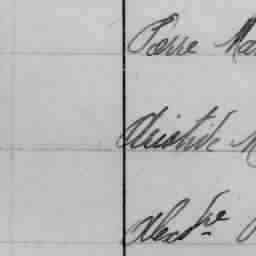 Pierre Ma
Aristide M
Alexdre